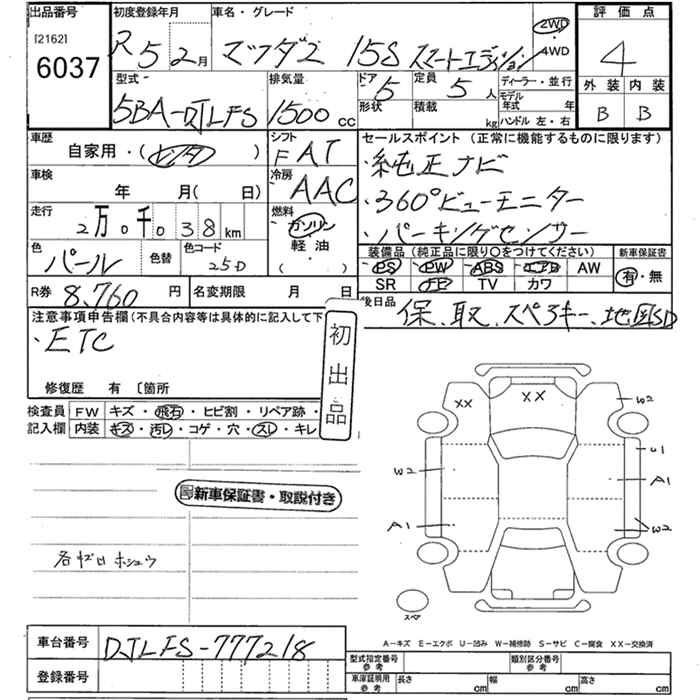 出品番号
[2162]
6037
初度登録年月
R 5 年 2 月
車名・グレード
マツダ2 15S スマートエディション
2WD
4WD
評価点
4
外装 内装
B B
型式
5BA-DJLFS
排気量
1500 cc
ドア
5
形状
定員
5 人
積載
kg
ディーラー・並行
モデル年式 年
ハンドル 左・右
車歴
自家用・( )
シフト
FAT
車検
年 月( 日)
冷房
AAC
走行
2万0千038km
燃料
ガソリン
軽油
( )
色
パール
色替
色コード
25D
セールスポイント (正常に機能するものに限ります)
・純正ナビ
・360°ビューモニター
・パーキングセンサー
装備品 (純正品に限り〇をつけてください)
PS PW ABS エアB AW
SR TV カワ
新車保証書
有・無
R券 8,760 円
名変期限 月 日
後日品
保、取、スペアキー、地図SD
注意事項申告欄(不具合内容等は具体的に記入して下
・ETC
修復歴 有 〔箇所
初出品
検査員記入欄
FW キズ・飛石・ヒビ割・リペア跡・
内装 キズ・汚レ・コゲ・穴・スレ・キレ
新車保証書・取説付き
各ゼロホシュウ
XX
XX
W2
U1
A1
W2
W2
A1
スペア
A-キズ E-エクボ U-凹み W-補修跡 S-サビ C-腐食 XX-交換済
車台番号 DJLFS-777218
登録番号
型式指定番号 参考
類別区分番号 参考
車庫証明用 参考
長さ cm
幅 cm
高さ cm